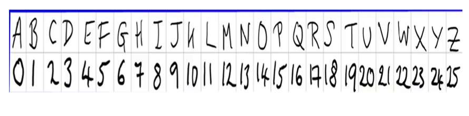 A B C D E F G H I J K L M N O P Q R S T U V W X Y Z
0 1 2 3 4 5 6 7 8 9 10 11 12 13 14 15 16 17 18 19 20 21 22 23 24 25